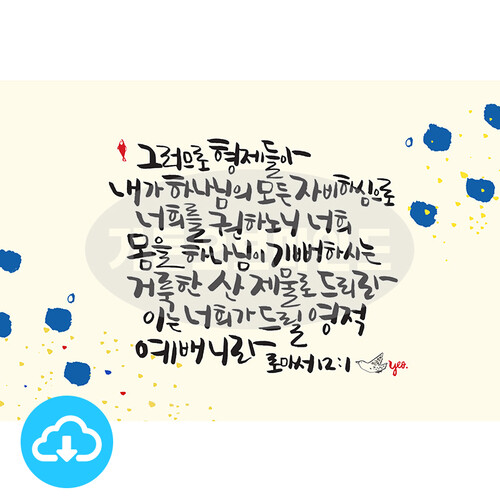 그러므로 형제들아
내가 하나님의 모든 자비하심으로
너희를 권하노니 너희
몸을 하나님이 기뻐하시는
거룩한 산 제물로 드리라
이는 너희가 드릴 영적
예배니라 로마서 12:1 yeo.